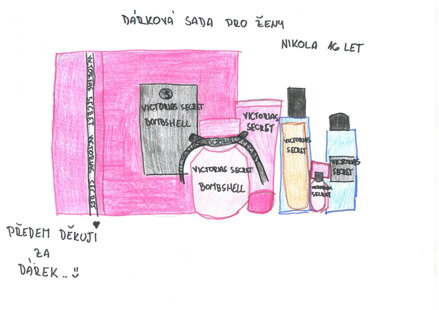 DÁRKOVÁ SADA PRO ŽENY
NIKOLA 16 LET
VICTORIAS SECRET VICTORIAS SECRET
VICTORIAS SECRET
BOMBSHELL
VICTORIAS
SECRET
VICTORIAS SECRET
BOMBSHELL
VICTORIAS
SECRET
VICTORIAS
SECRET
VICTORIAS
SECRET
PŘEDEM DĚKUJI
ZA
DÁREK..